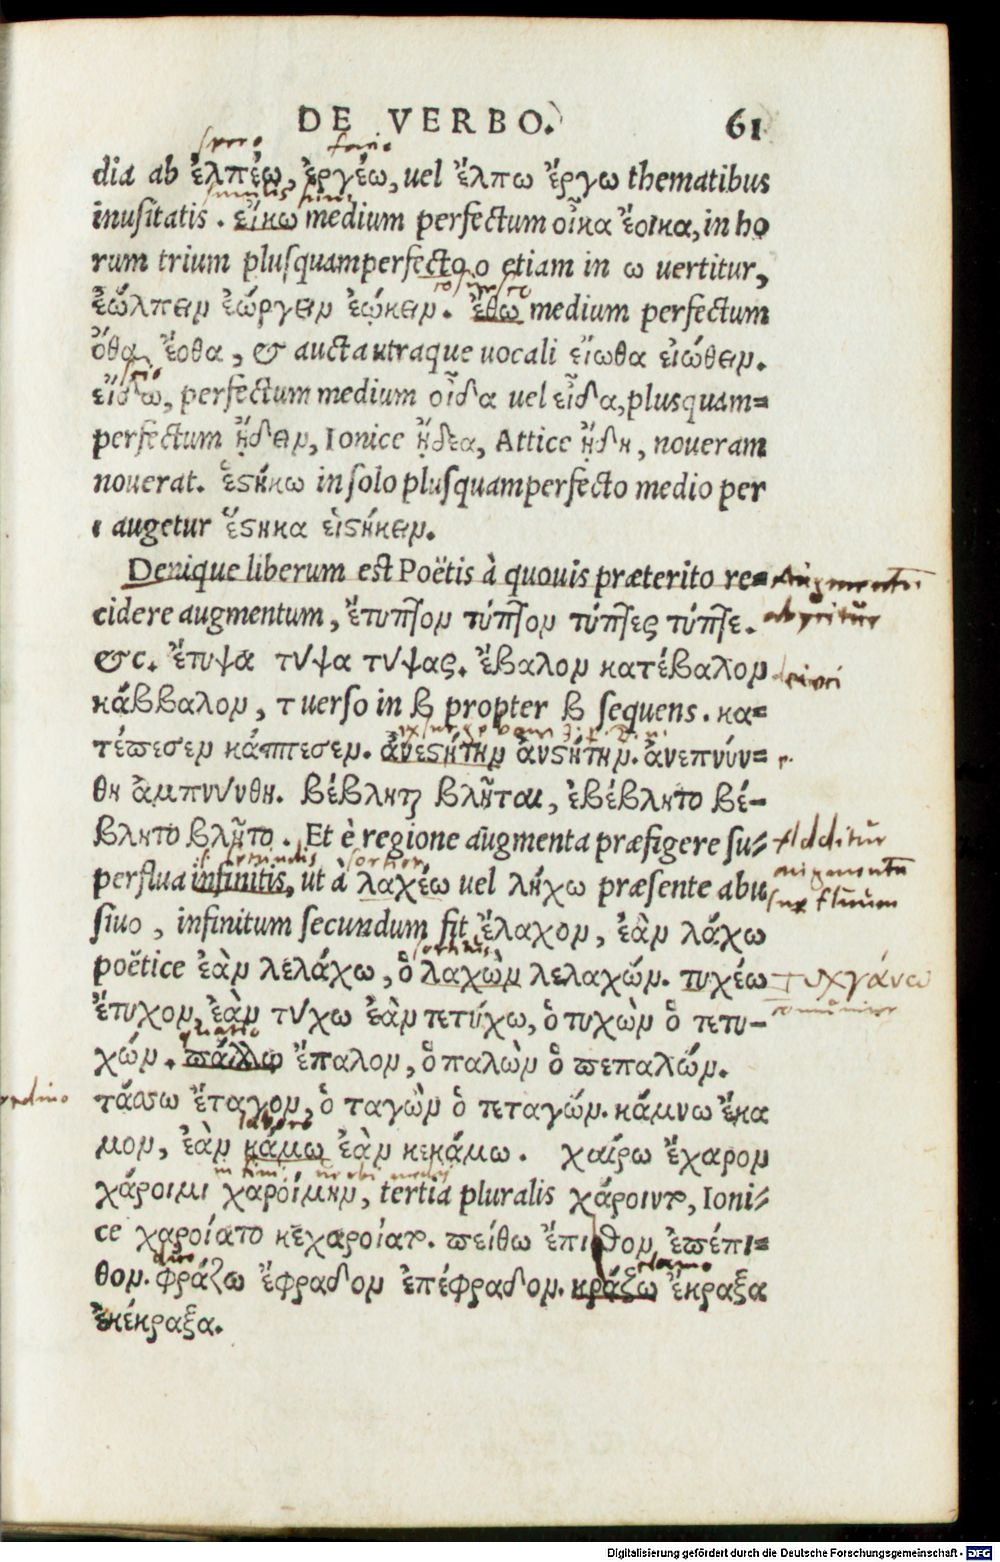 DE VERBO. 61
spero facio
dia ab ἐλπέω, ἐργέω, uel ἔλπω ἔργω thematibus
similis sum
inusitatis. εἴκω medium perfectum οἶκα ἔοικα, in ho
rum trium plusquamperfecto o etiam in ω uertitur,
ἐώλπειν ἐώργειν ἐῴκειν. ἔθω medium perfectum
ὄθα, ἔοθα, & aucta utraque uocali εἴωθα εἰώθειν.
scio
εἴδω, perfectum medium οἶδα uel εἶδα, plusquam=
perfectum ᾔδειν, Ionice ᾔδεα, Attice ᾔδη, noueram
nouerat. ἑστήκω in solo plusquamperfecto medio per
ι augetur ἕστηκα εἱστήκειν.
Denique liberum est Poëtis à quouis præterito re=
cidere augmentum, ἔτυπτον τύπτον τύπτες τύπτε.
&c. ἔτυψα τύψα τύψας. ἔβαλον κατέβαλον
κάββαλον, τ uerso in β propter β sequens. κα=
τέπεσεν κάππεσεν. ἀνεστήτην ἀνστήτην. ἀνεπνύν=
θη ἀμπνύνθη. βέβληται βλῆται, ἐβέβλητο βέ-
βλητο βλῆτο. Et è regione augmenta præfigere su=
Additur
augmentum
sortior
perflua infinitis, ut à λαχέω uel λήχω præsente abu
siuo, infinitum secundum fit ἔλαχον, ἐὰν λάχω
poëtice ἐὰν λελάχω, ὁ λαχὼν λελαχών. τυχέω
τυχγάνω
ἔτυχον, ἐὰν τύχω ἐὰν τετύχω, ὁ τυχὼν ὁ τετυ-
χών. πάλλω ἔπαλον, ὁ παλὼν ὁ πεπαλών.
τάσσω ἔταγον, ὁ ταγὼν ὁ τεταγών. κάμνω ἔκα
laboro
μον, ἐὰν κάμω ἐὰν κεκάμω. χαίρω ἔχαρον
χάροιμι χαροίμην, tertia pluralis χάροιντο, Ioni=
ce χαροίατο κεχαροίατο. πείθω ἔπιθον, ἐπέπι=
clamo
θον. φράζω ἔφραδον ἐπέφραδον. κράζω ἔκραξα
ἐκέκραξα.
Digitalisierung gefördert durch die Deutsche Forschungsgemeinschaft - DFG